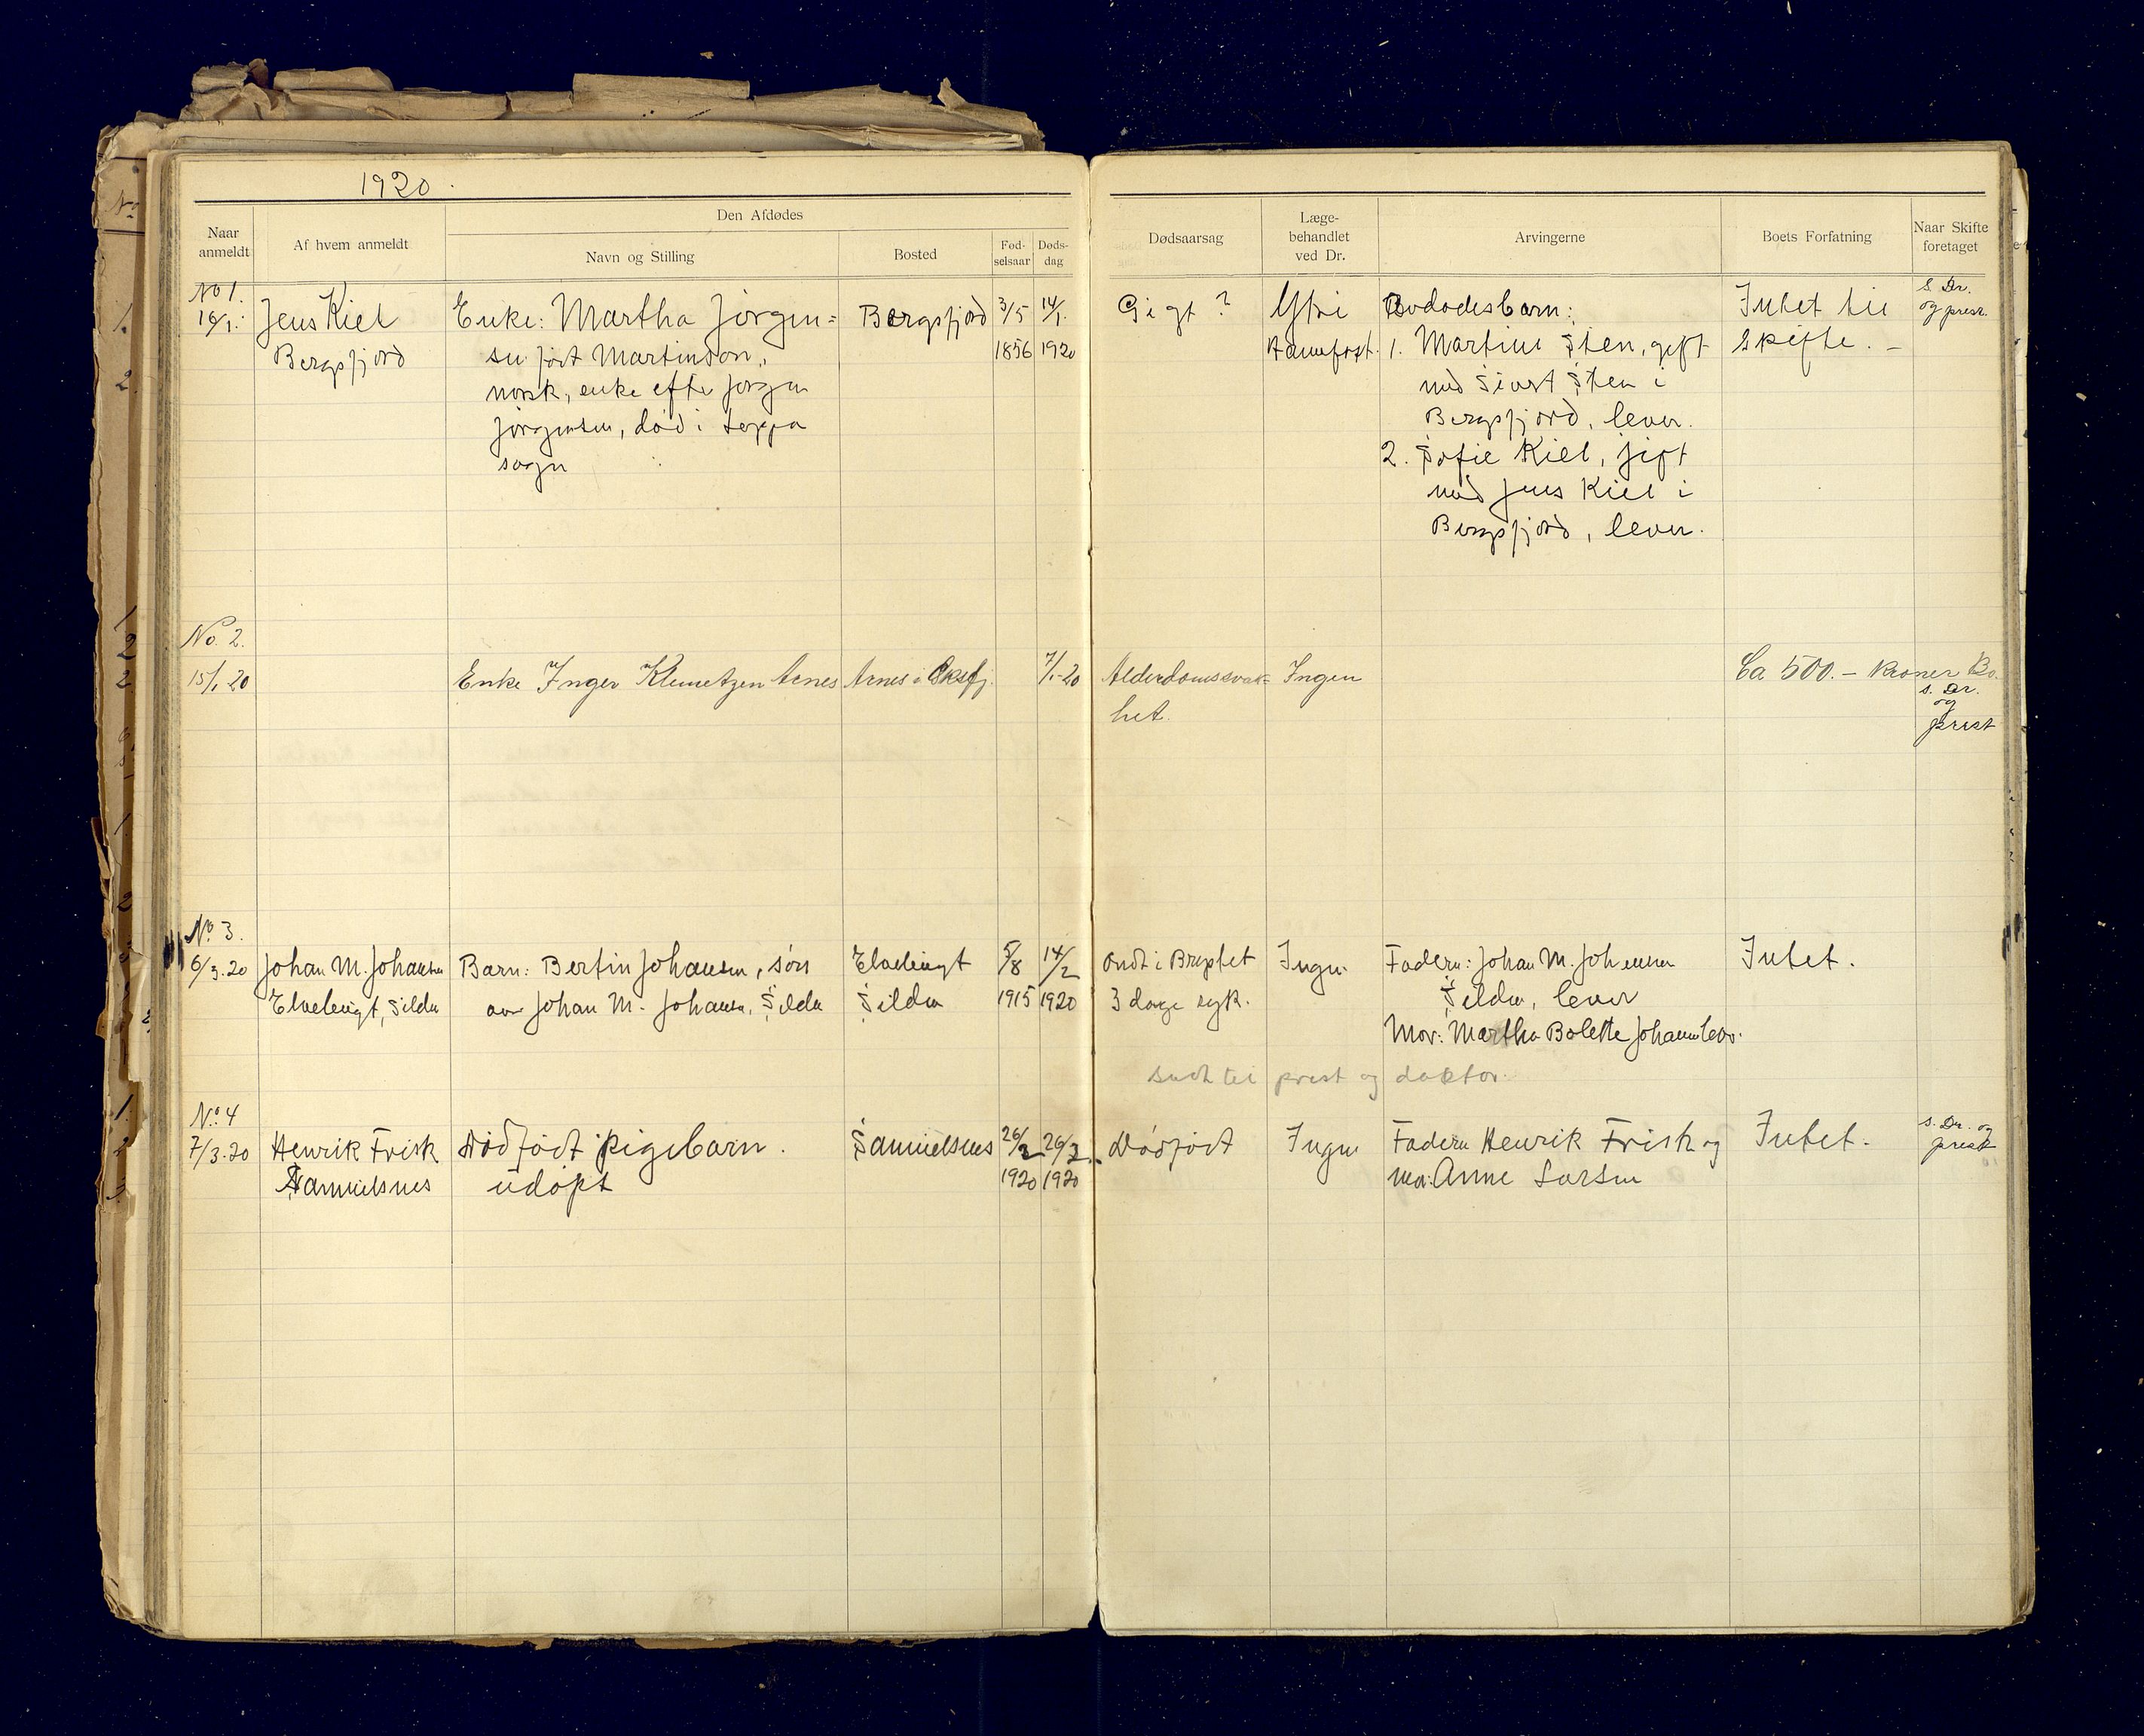 1920.
Naar anmeldt
Af hvem anmeldt
Den Afdødes
Navn og Stilling
Bosted
Fød-selsaar
Døds-dag
Dødsaarsag
Læge-behandlet ved Dr.
Arvingerne
Boets Forfatning
Naar Skifte foretaget
No 1.
16/1.
Jens Kiel
Bergsfjord
Enke: Martha Jørgen=
sen født Martinson,
norsk, enke efter Jørgen
Jørgensen, død i Loppa
sogn
Bergsfjord
3/5
1856
14/1.
1920
Gigt?
Ytri
Hammerfest.
1. Martine Sten, gift
med Sivert Sten i
Bergsfjord, lever.
2. Sofie Kiel, gift
med Jens Kiel i
Bergsfjord, lever.
Intet til
skifte. –
s. Dr.
og prest.
No. 2.
15/1-20
Enke Inger Klemetzen Arnes
Arnes i Øksfj.
7/1-20
Alderdomssvak=
het.
Ingen
Ca 500.– kroner Bo.
s. Dr.
og
prest
No. 3.
6/3.20
Johan M. Johansen
Elvelengt, Silda
Barn: Bertin Johansen, søn
av Johan M. Johansen, Silda
Elvelengt
Silda
5/8
1915
14/2
1920
Ondt i Brystet
3 dage syk.
Ingen
Faderen: Johan M. Johansen
Silda, lever
Mor: Martha Bolette Johansen lever.
Intet.
sendt til prest og doktor.
No. 4
7/3.20
Henrik Frisk
Samuelsnes
Dødfødt pigebarn.
udøpt
Samuelsnes
26/2
1920
26/2.
1920
Dødfødt
Ingen
Faderen Henrik Frisk og
mor: Anne Larsen
Intet.
s. Dr. og
prest